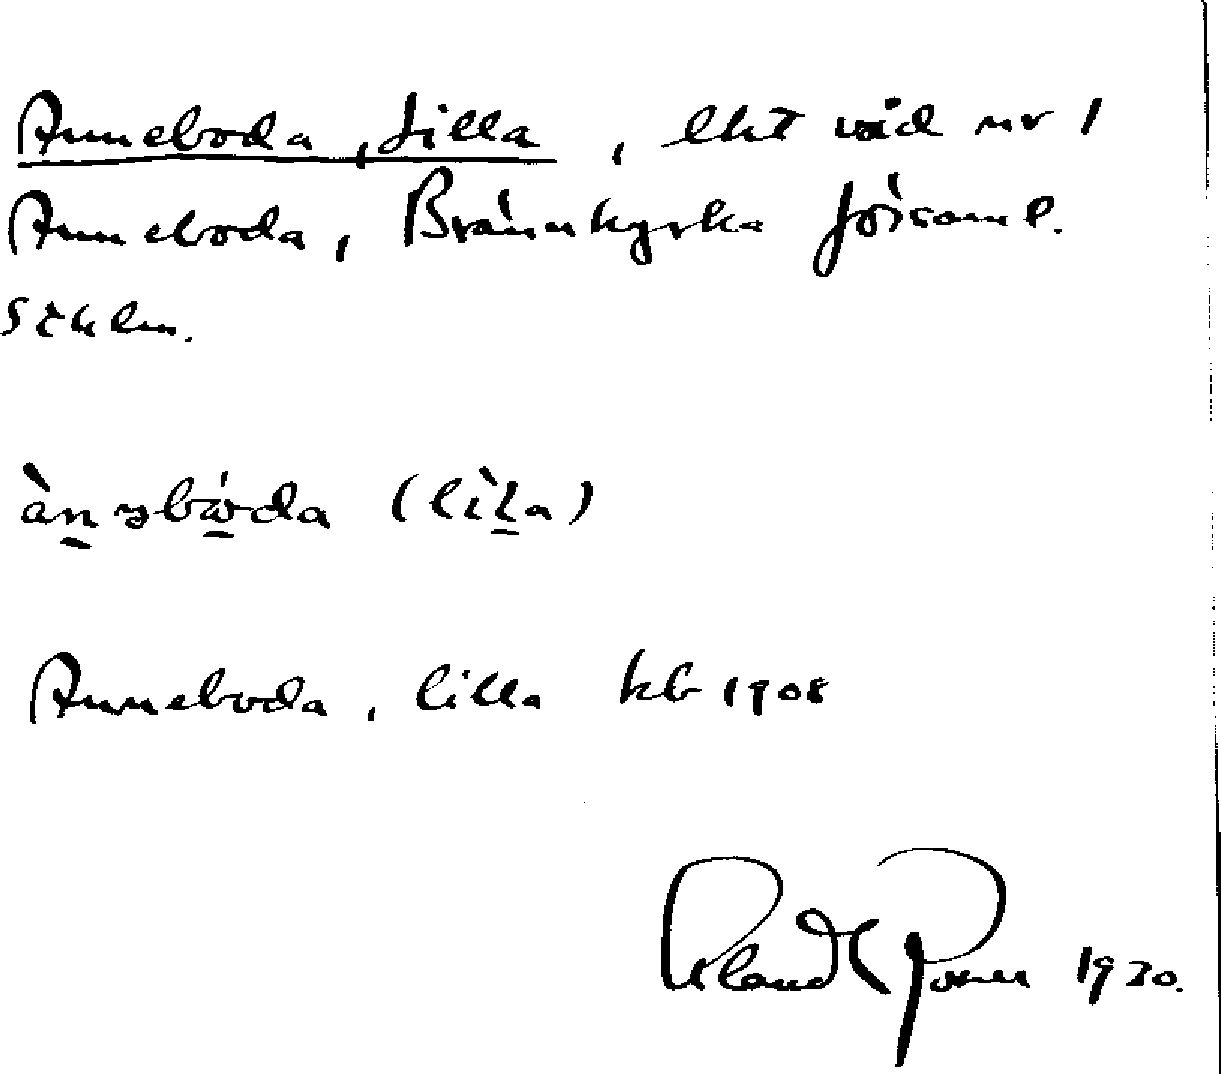 Anneboda, Lilla, lht vid nr 1
Anneboda, Brännkyrka församl.
Sthlm.
ànəbóda (lìla)
Anneboda, lilla kb 1908
1930.